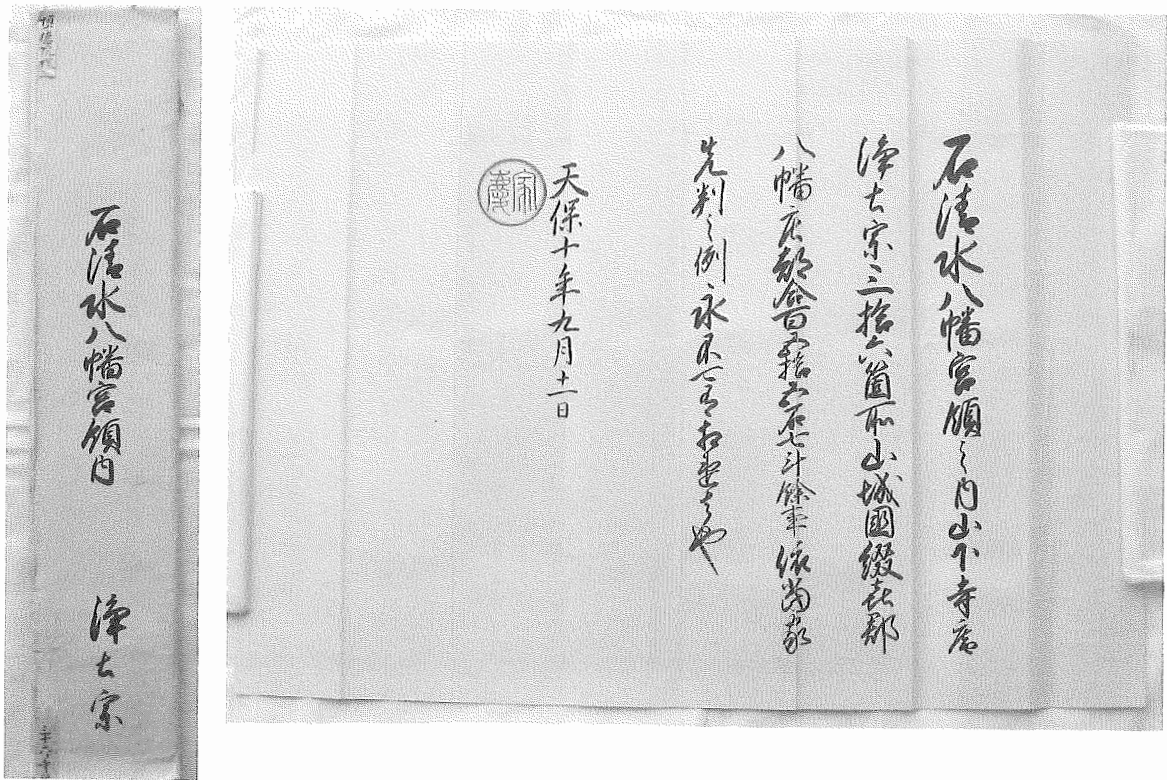 石清水八幡宮領之内山下寺庵
浄土宗三拾六箇所山城國綴喜郡
八幡庄都合百五拾六石七斗餘事依当家
先判之例永不可有相違者也
天保十年九月十一日
家慶
石清水八幡宮領内
浄土宗